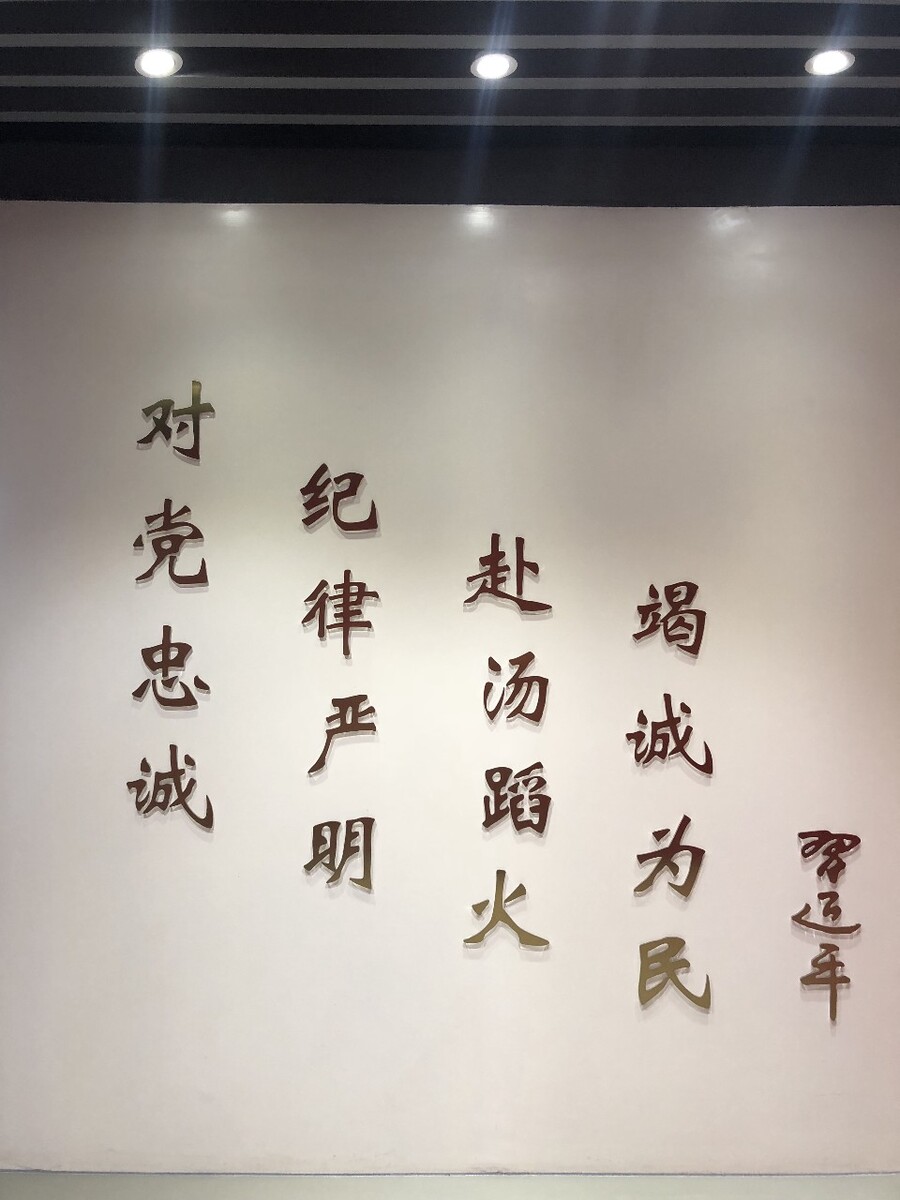 对党忠诚
纪律严明
赴汤蹈火
竭诚为民
习近平